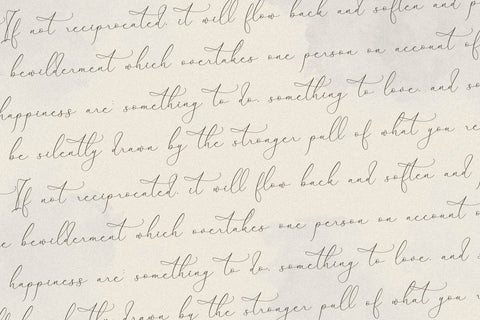 If not reciprocated, it will flow back and soften and p
bewilderment which overtakes one person on account of
happiness are something to do, something to love, and so
be silently drawn by the stronger pull of what you re
If not reciprocated, it will flow back and soften and
e bewilderment which overtakes one person on account o
happiness are something to do, something to love, and s
drawn by the stronger pull of what you r